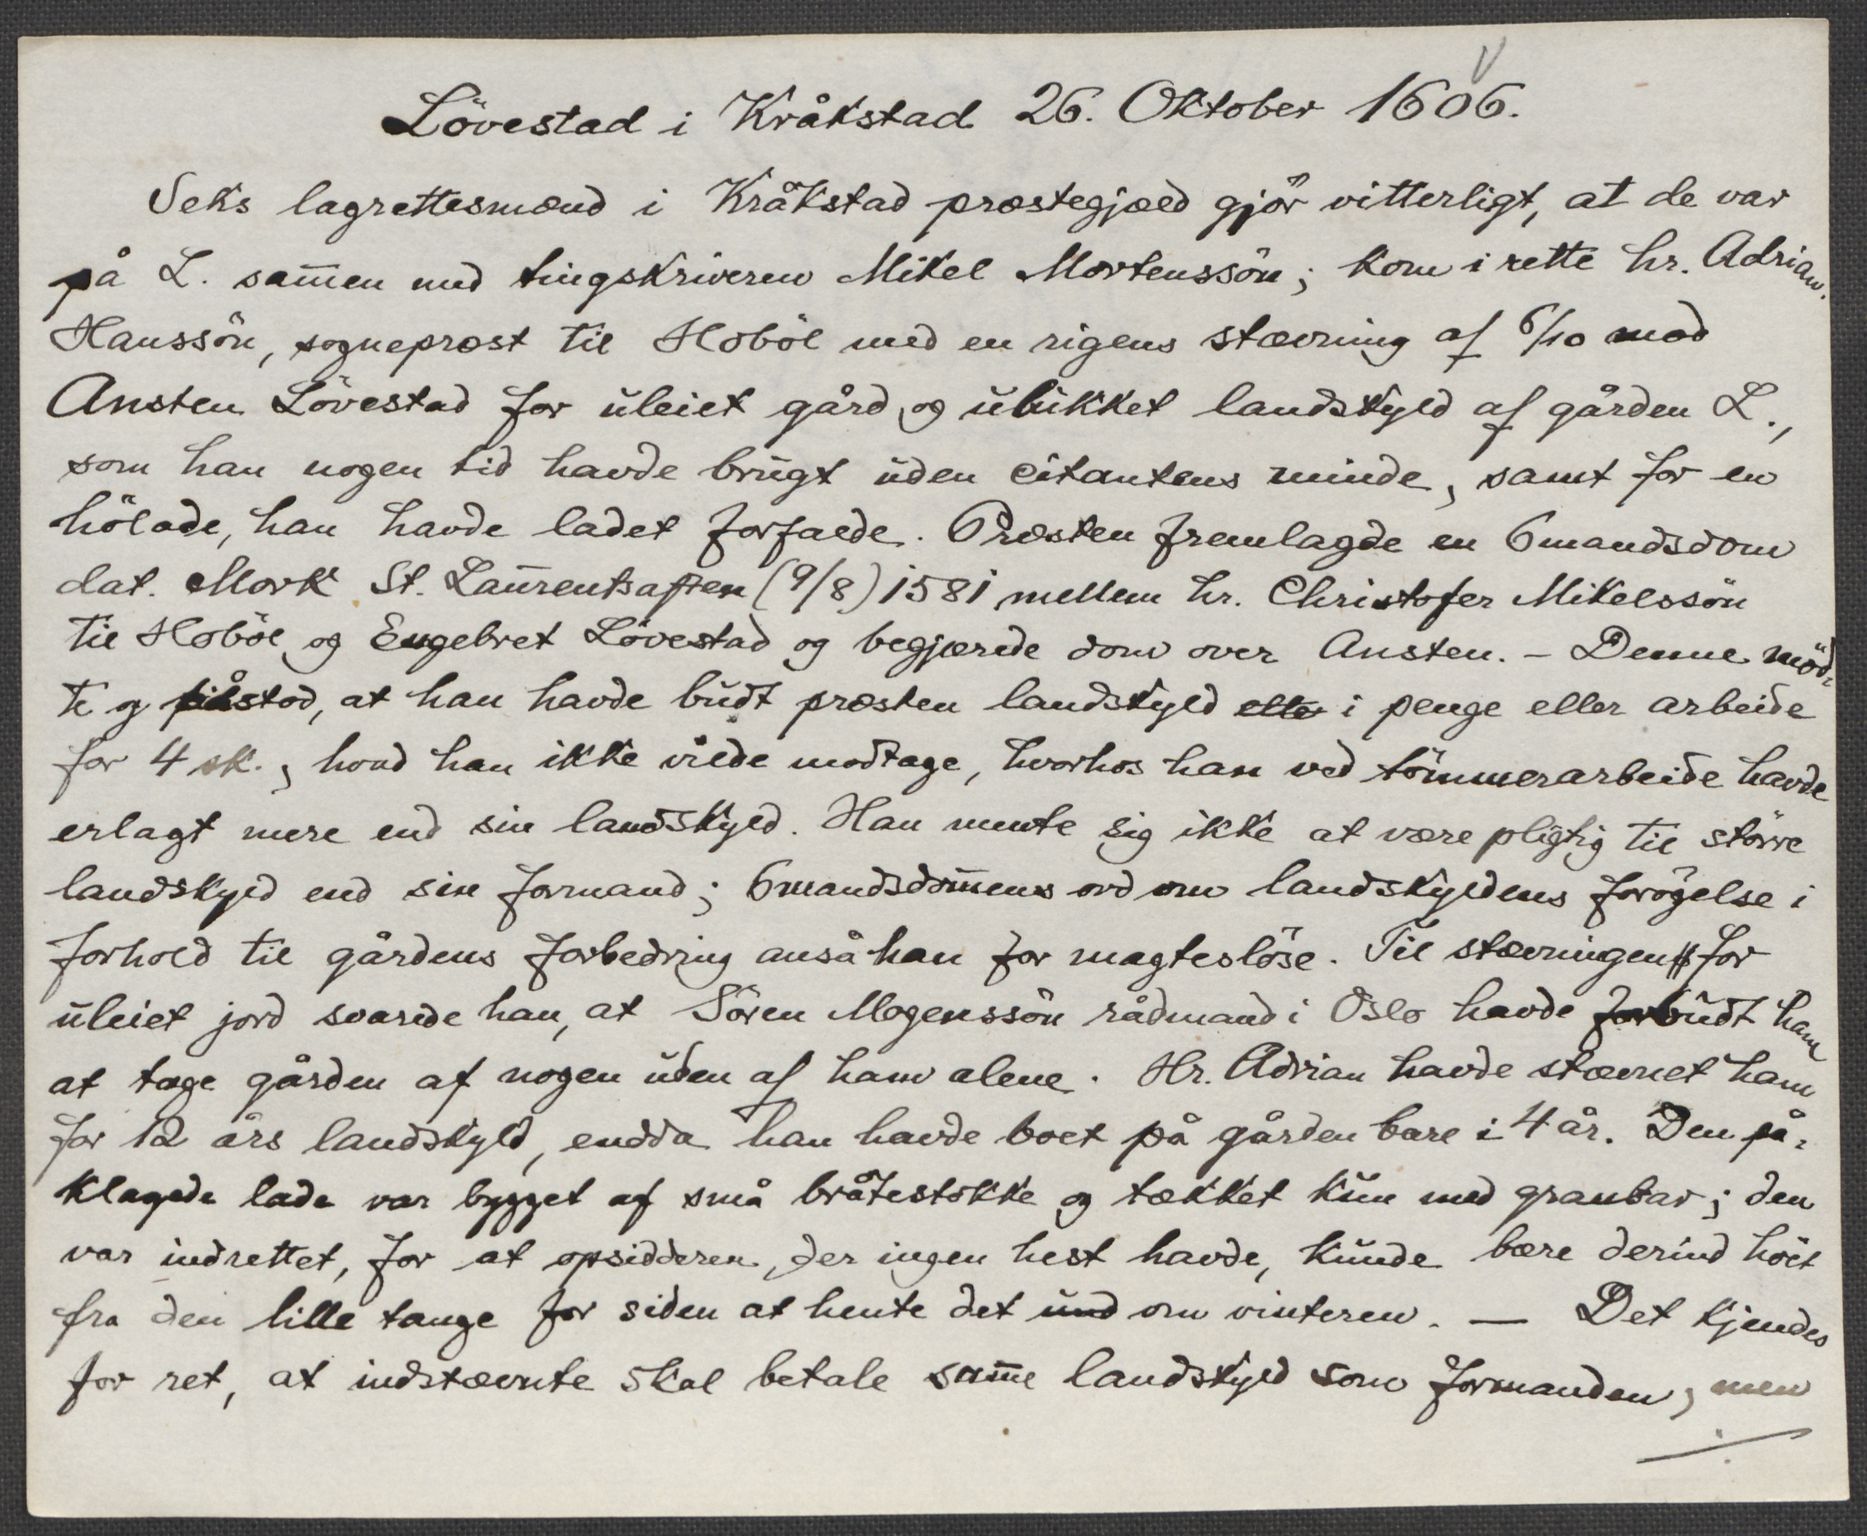 Lövestad i Kråkstad 26. Oktober 1606.
Seks lagrettesmænd i Kråkstad præstegjæld gjör vitterligt, at de var
på L. sam̅en med tingskriveren Mikel Mortenssön; kom i rette hr. Adrian
Hanssön, sogneprest til Höböl med en rigens stævning af 6/10 mod
Ansten Lövestad for uleiet gård og ubikket landskyld af gården L.,
som han nogen tid havde brugt uden citantens minde, samt for en
hölade, han havde ladet forfalde. Presten fremlagde en 6mandsdom
dat. Mork St. Laurentsaften (9/8) 1581 mellem hr. Christofer Mikelssön
til Höböl og Engebret Lövestad og begjærede dom over Ansten. – Denne möd-
te og påstod, at han havde budt præsten landskyld i penge eller arbeide
for 4 sk., hvad han ikke vilde modtage, hvorhos han ved tömmerarbeide havde
erlagt mere end sin landskyld. Han mente sig ikke at være pligtig til större
landskyld end sin formand; 6mandsdom̅ens ord om landskyldens forögelse i
forhold til gårdens forbedring anså han for magteslöse. Til stævningen for
uleiet jord svarede han, at Sören Mogenssön rådmand i Oslo havde forbudt ham
at tage gården af nogen uden af ham alene. Hr. Adrian havde stævnet ham
for 12 års landskyld, endda han havde boet på gården bare i 4 år. Den på-
klagede lade var bygget af små bråtestokke og tækket kun med granbar; den
var indrettet, for at opsidderen, der ingen hest havde, kunde bære derind höet
fra den lille tange for siden at hente det om vinteren. — Det kjendes
for ret, at indstævnte skal betale sam̅e landskyld som formanden, men
./.